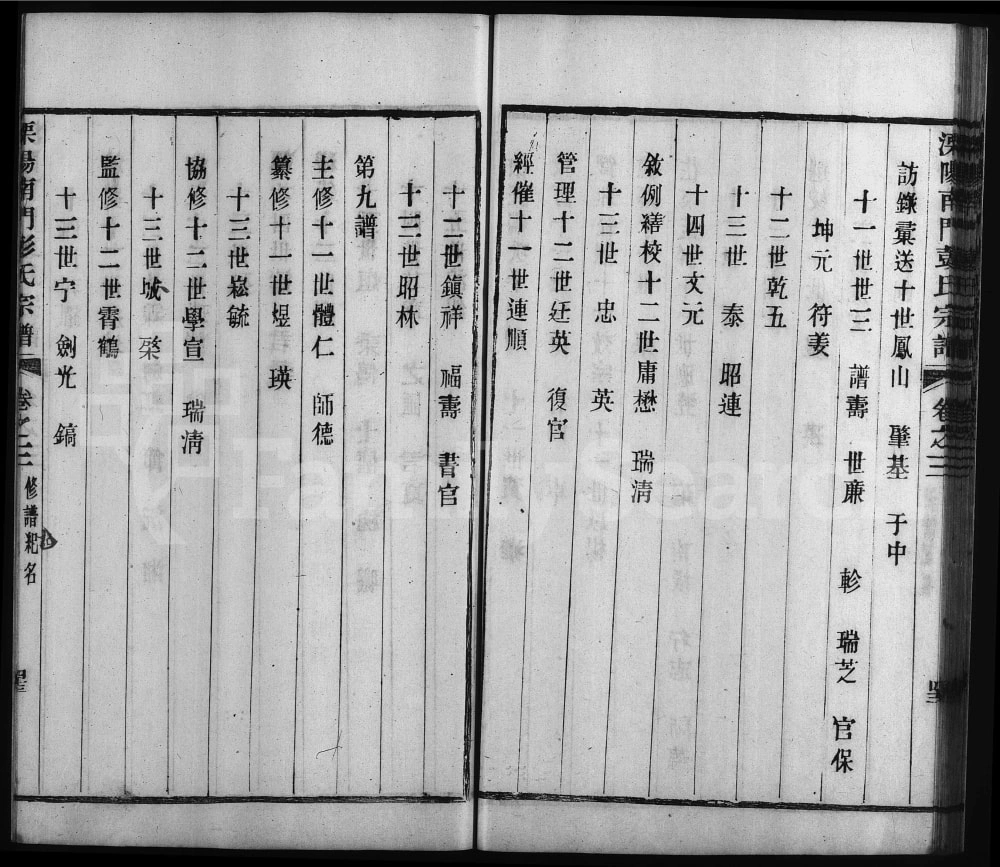 溧陽南門彭氏宗譜 卷之三
訪錄彙送十世鳳山 肇基 于中
十一世世三 譜壽 世廉 軫 瑞芝 官保
坤元 符姜
十二世乾五
十三世 泰 昭連
十四世文元
敘例繕校十二世庸懋 瑞淸
十三世 忠 英
管理十二世廷英 復官
經催十一世連順
十二世鎭祥 福壽 書官
十三世昭林
第九譜
主修十二世體仁 師德
纂修十一世煜 瑛
十三世崧毓
協修十二世學宣 瑞淸
十三世城 棨
監修十二世霄鶴
十三世宁 劍光 鎬
溧陽南門彭氏宗譜 卷之三 修譜紀名